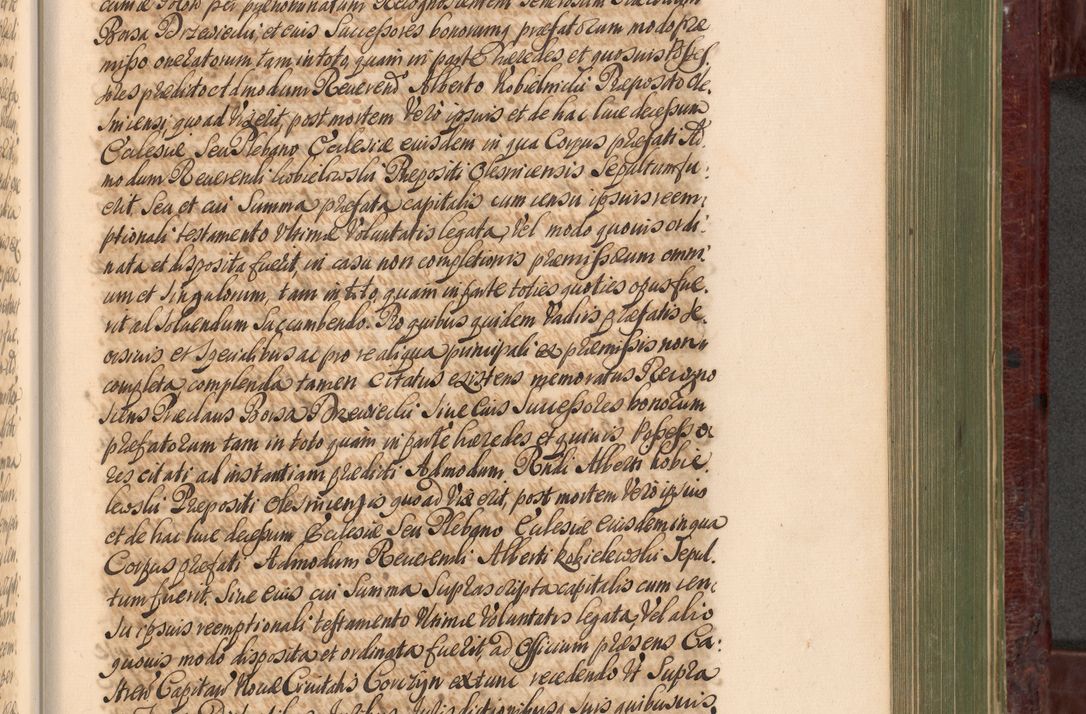 Borsa Drzewiecki, et eius Successores bonorum, præfatorum modo præ
misso oneratorum tam in toto, quam in parte hæredes et quosuis Posses,
sores prædicto Admodum Reuerend Alberto Kobielnicki Preposito Ole
snicensi, quoad vixerit, post mortem Vero ipsius et de hac luce decessum
Ecclesiæ Seu Plebano Ecclesiæ eiusdem in qua Corpus præfati Ad.
modum Reuerendi Kobielowski Præpositi Olesnicensis Sepultum fu.
erit Seu et cui Summa præfata capitalis cum censu ipsius reem
ptionali testamento Vltimæ Voluntatis legata, Vel modo quouis ordi.
nata et disposita fuerit, in casu non completionis præmissorum omni
um et Singulorum, tam in toto, quam in parte toties quoties opus fue.
rit ad Soluendum Succumbendo. Pro quibus quidem Vadiis præfatis se.
orsiuis et Specialibus ac pro re aliqua principali ex præmissis non
completa complenda tamen citatus existens memoratus Recogno
scens Præclaus Borsa Drzewiecki Siue Eius Successores bonorum
præfatorum tam in toto quam in parte hæredes et quiuis Possesso
res citati ad instantiam prædicti Admodum Rndi Alberti Kobie
lewski Præpositi Olesnicensis quoad Vixerit, post mortem Vero ipsius
et de hac luce decessum Ecclesiæ Seu Plebano Ecclesiæ eiusdem in qua
Corpus præfati Admodum Reuerendi Alberti Kobielewski Sepul.
tum fuerit. Siue Eius cui Summa Suprascripta capitalis cum cen,
su ipsius reemptionali testamento Vltimæ Voluntatis legata, Vel alio
quouis modo disposita et ordinata fuerit, ad Officium præsens Ca:
stren Capitan Nouæ Ciuitatis Corczyn extunc recedendo Vt Supra